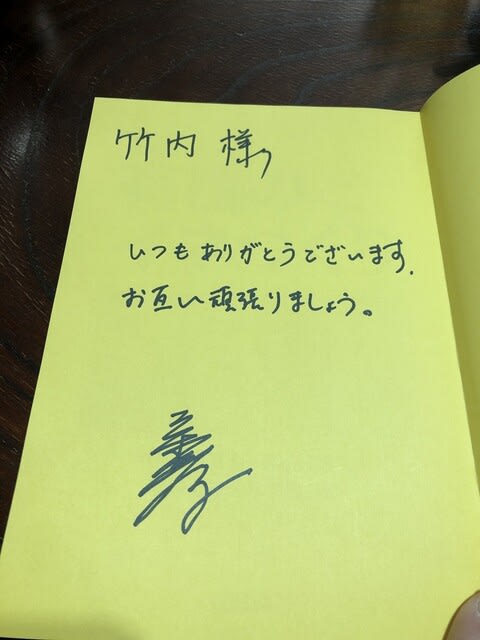 竹内 様
いつもありがとうございます.
お互い頑張りましょう。